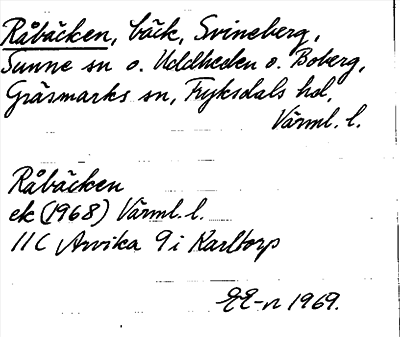 Råbäcken, bäck, Svineberg,
Sunne sn o. Uddheden o. Boberg,
Gräsmarks sn, Fryksdals hd,
Värml. l.
Råbäcken
ek (1968) Värml. l.
11C Arvika 9i Karltorp
EE-n 1969.